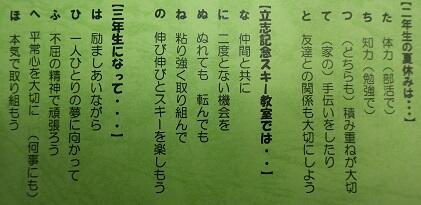 【二年生の夏休みは・・・】
た 体力（部活で）
ち 知力（勉強で）
つ （どちらも）積み重ねが大切
て （家の）手伝いをしたり
と 友達との関係も大切にしよう
【立志記念スキー教室では・・】
な 仲間と共に
に 二度とない機会を
ぬ ぬれても 転んでも
ね 粘り強く取り組んで
の 伸び伸びとスキーを楽しもう
【三年生になって・・・・】
は 励ましあいながら
ひ 一人ひとりの夢に向かって
ふ 不屈の精神で頑張ろう
へ 平常心を大切に （何事にも）
ほ 本気で取り組もう